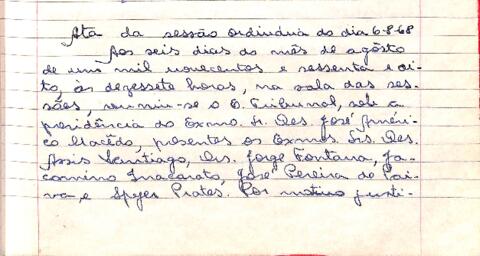 Ata da sessão ordinária do dia 6-8-68
Aos seis dias do mês de agôsto
de um mil novecentos e sessenta e oi-
to, às dezessete horas, na sala das ses-
sões, reuniu-se o E. Tribunal, sob a
presidência do Exmo. Sr. Des. José Améri-
co Macêdo, presentes os Exmos. Srs. Des.
Assis Santiago, Drs. Jorge Fontana, Ja-
comino Inacarato, José Pereira de Pai-
va e Spyer Prates. Por motivo justi-